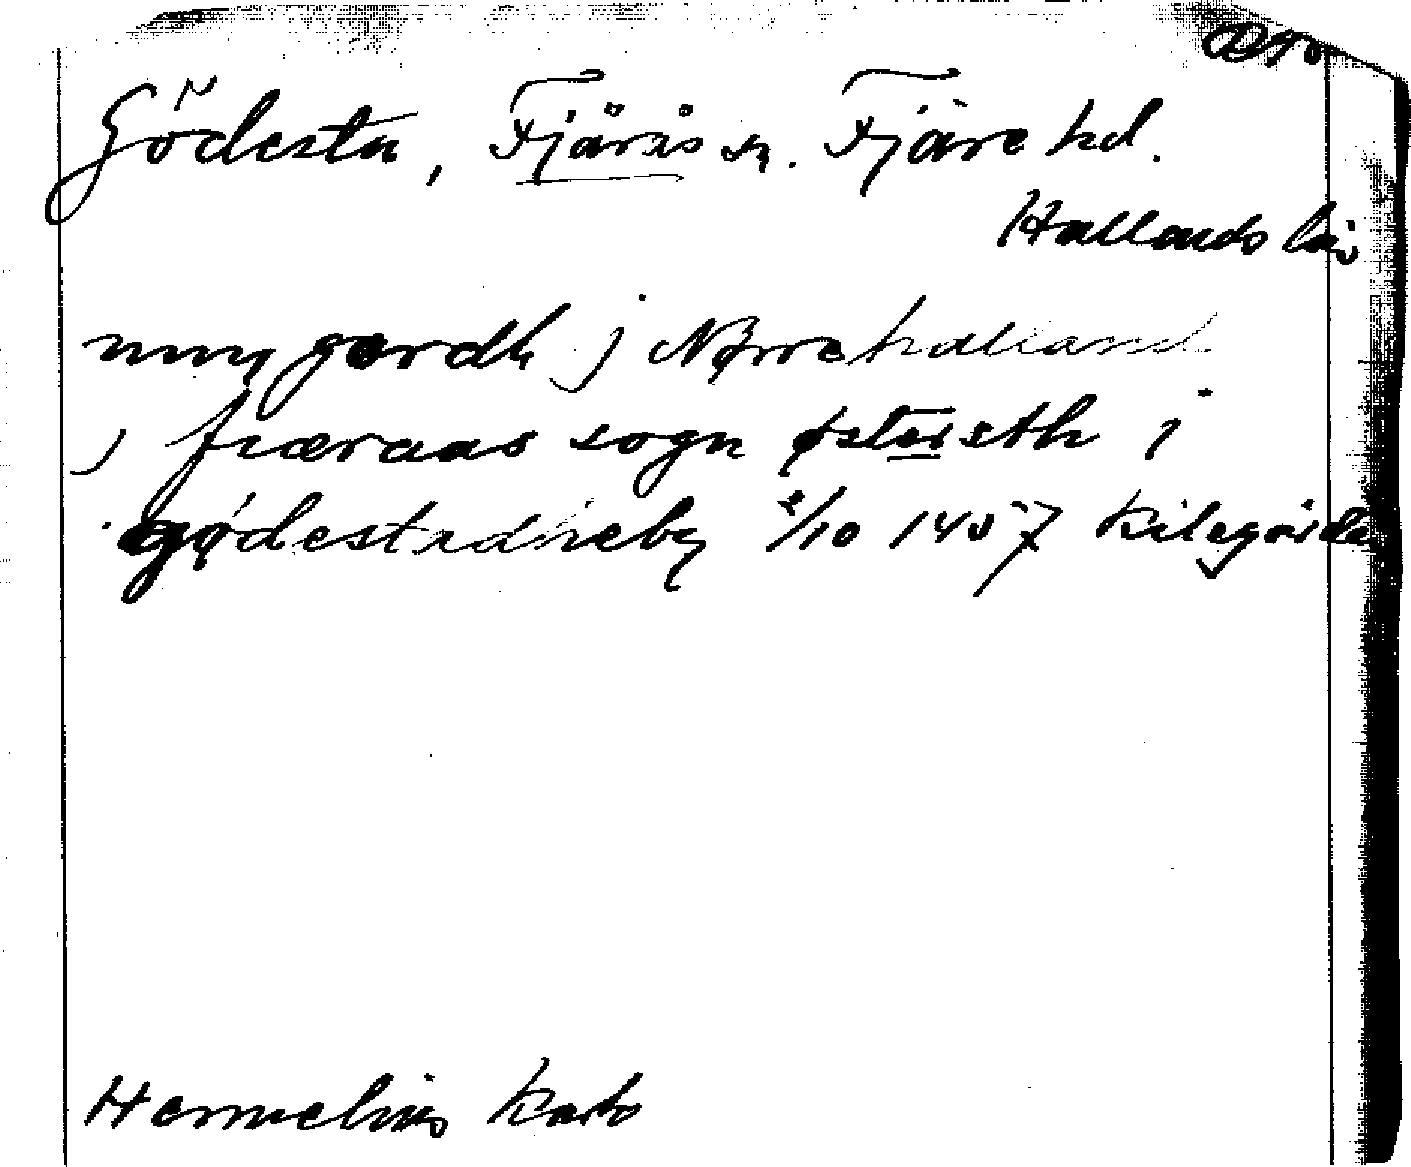 Gödesta, Fjärås sn. Fjäre hd.
Hallands län
myn gordh j Nørrehalland
j fiæraas sogn østersth i
gødestadheby 2/10 1457 Kilegården
Hermelins Karto